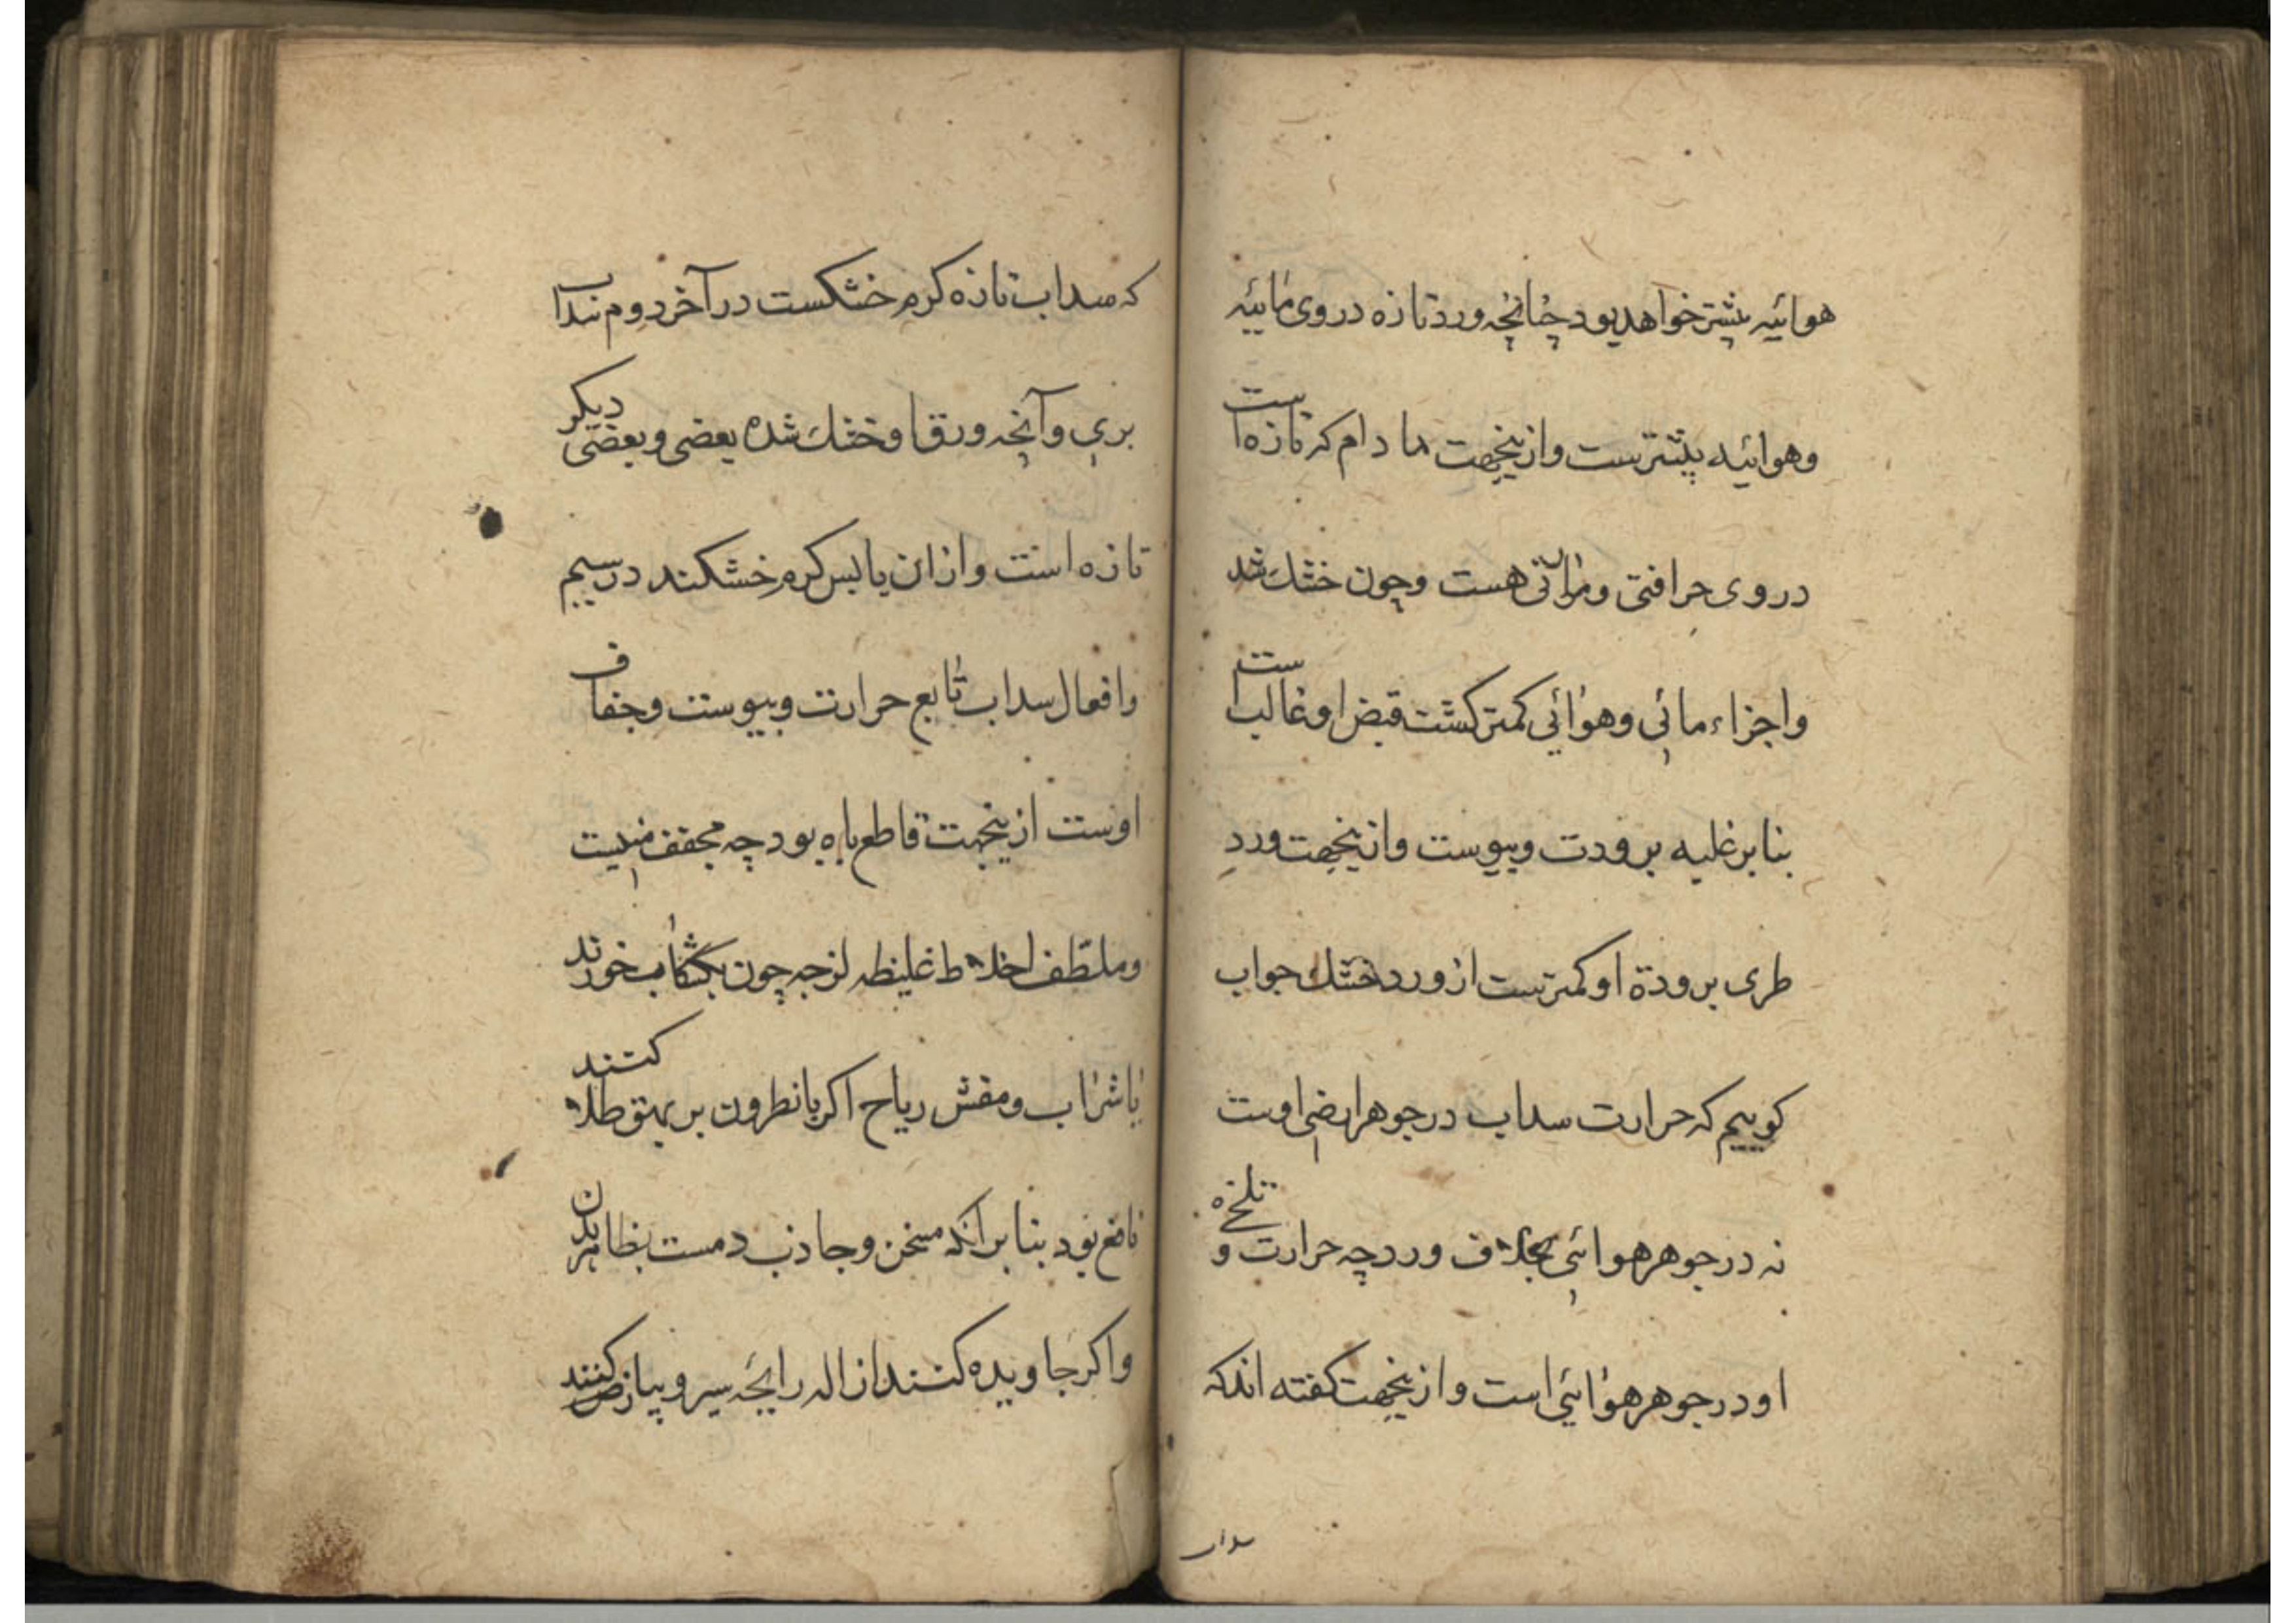 هوائیه پیشتر خواهد بود چنانچه ورد تازه در وی مائیه
وهوائیه پیشترست وازینجهت ما دام که تازه است
در وی حرافتی ومرارتی هست وچون خشک شد
واجزاء مائی وهوائی کمتر کشت قبض او غالب است
بنا بر غلبه برودت ویبوست وازینجهت ورد
طری برودة او کمترست از ورد خشک جواب
کوییم که حرارت سداب در جوهر ارضی اوست
نه در جوهر هوائی بخلاف ورد چه حرارت و تلخی
او در جوهر هوائی است وازینجهت کفته اند که
سداب
که سداب تازه کرم خشکست در آخر دوم سداب
بری وآنچه ورق او خشک شده بعضی وبعضی دیکر
تازه است وازان یابس کرم خشکند در سیم
وافعال سداب تابع حرارت ویبوست وجفاف
اوست ازینجهت قاطع باه بود چه مجفف منیست
وملطف اخلاط غلیظه لزجه چون بکشکاب خورند
یا شراب ومفش ریاح اکر با نطرون بر بهق طلا کنند
نافع بود بنا بر آنکه مسخن وجاذب دمست بظاهر بدن
واکر جاویده کنند ازاله رایحه سیر وپیاز کنند